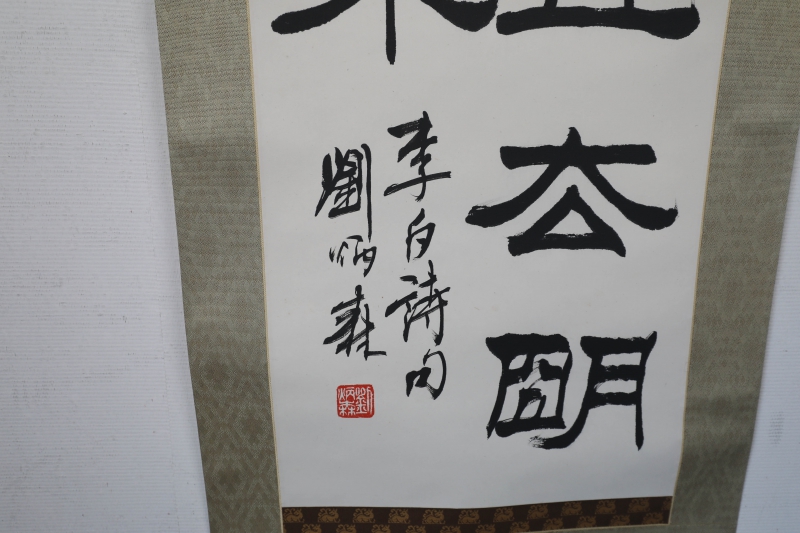 去明
李白詩句
劉炳森
劉炳森